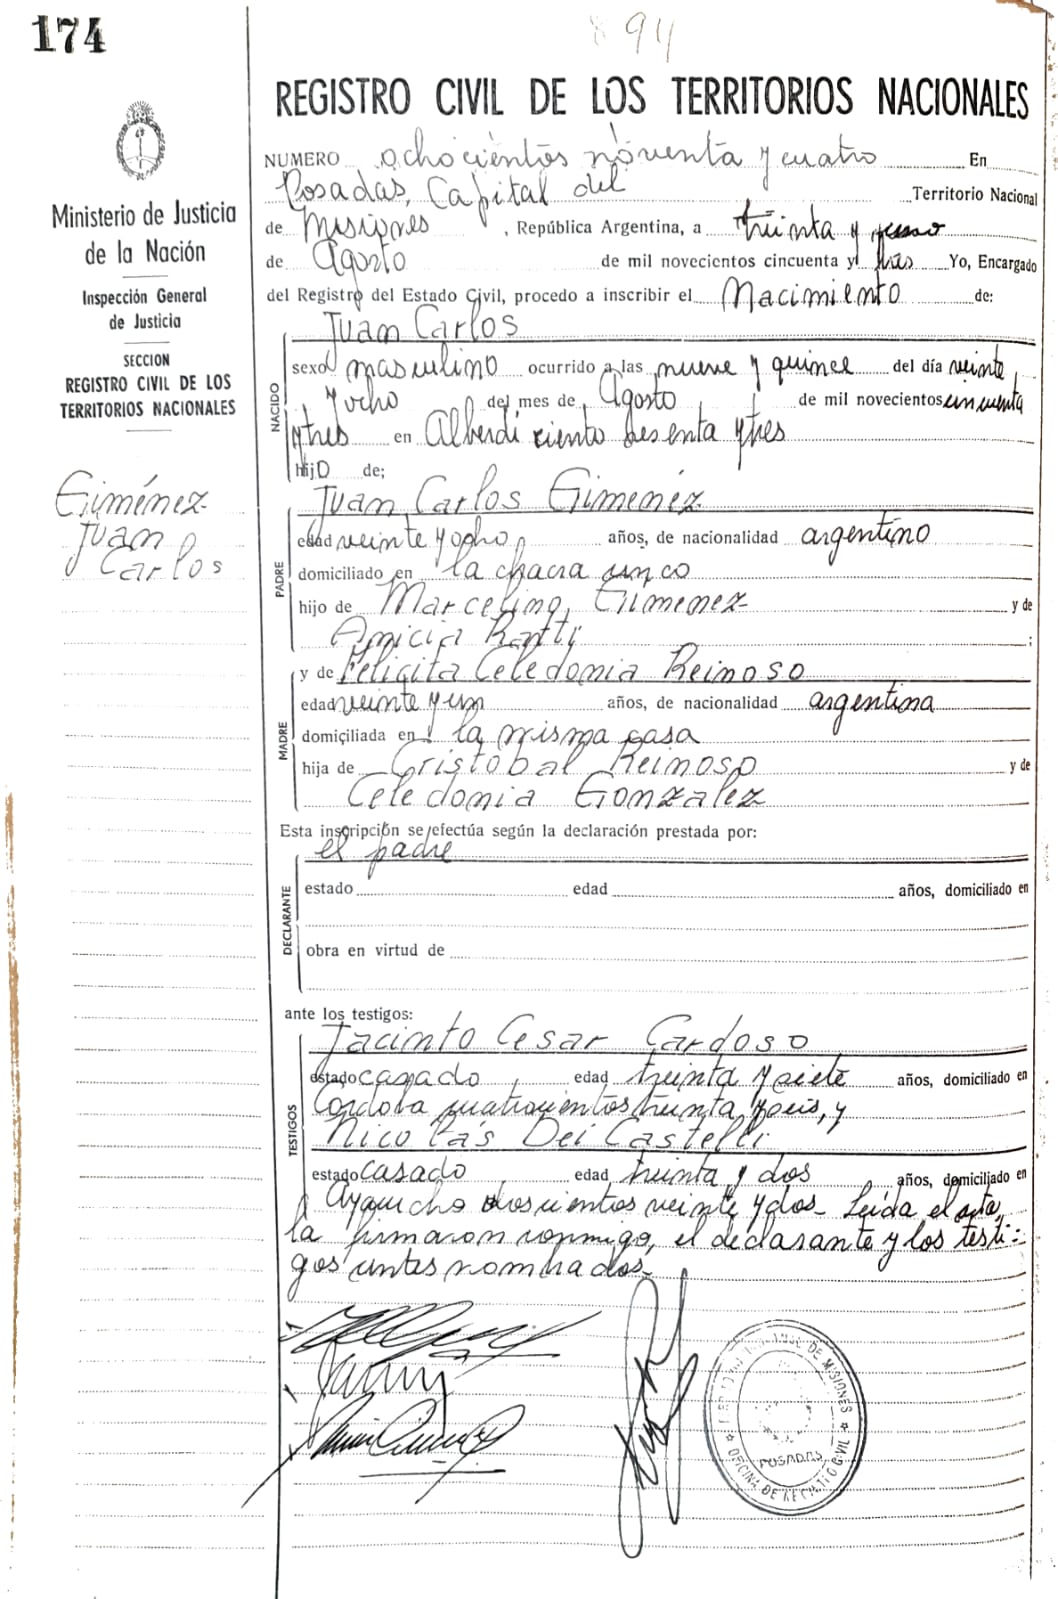 174
894
REGISTRO CIVIL DE LOS TERRITORIOS NACIONALES
NUMERO ochocientos noventa y cuatro En
Posadas, Capital del Territorio Nacional
de Misiones, República Argentina, a treinta y uno
de Agosto de mil novecientos cincuenta y tres Yo, Encargado
del Registro del Estado Civil, procedo a inscribir el Nacimiento de:
Juan Carlos
NACIDO
sexo masculino ocurrido a las nueve y quince del día veinte
y ocho del mes de Agosto de mil novecientos cincuenta
y tres en Alberdi ciento sesenta y tres
hijo de;
PADRE
Juan Carlos Gimenez
edad veinte y ocho años, de nacionalidad argentino
domiciliado en la chacra
hijo de Marcelino Gimenez y de
Amicia Ratti;
MADRE
y de Felicita Celedonia Reinoso
edad veinte y un años, de nacionalidad argentina
domiciliada en la misma casa
hija de Cristobal Reinoso y de
Celedonia Gonzalez
Esta inscripción se efectúa según la declaración prestada por:
el padre
DECLARANTE
estado edad años, domiciliado en
obra en virtud de
ante los testigos:
TESTIGOS
Jacinto Cesar Cardoso
estado casado edad treinta y siete años, domiciliado en
Córdoba cuatrocientos treinta y seis, y
Nicolás Dei Castelli
estado casado edad treinta y dos años, domiciliado en
Ayacucho doscientos veinte y dos- Leída el acta,
la firmaron conmigo, el declarante y los testi-
gos antes nombrados-
Ministerio de Justicia
de la Nación
Inspección General
de Justicia
SECCION
REGISTRO CIVIL DE LOS
TERRITORIOS NACIONALES
Giménez
Juan
Carlos
DE MISIONES
POSADAS
OFICINA DE REGISTRO CIVIL